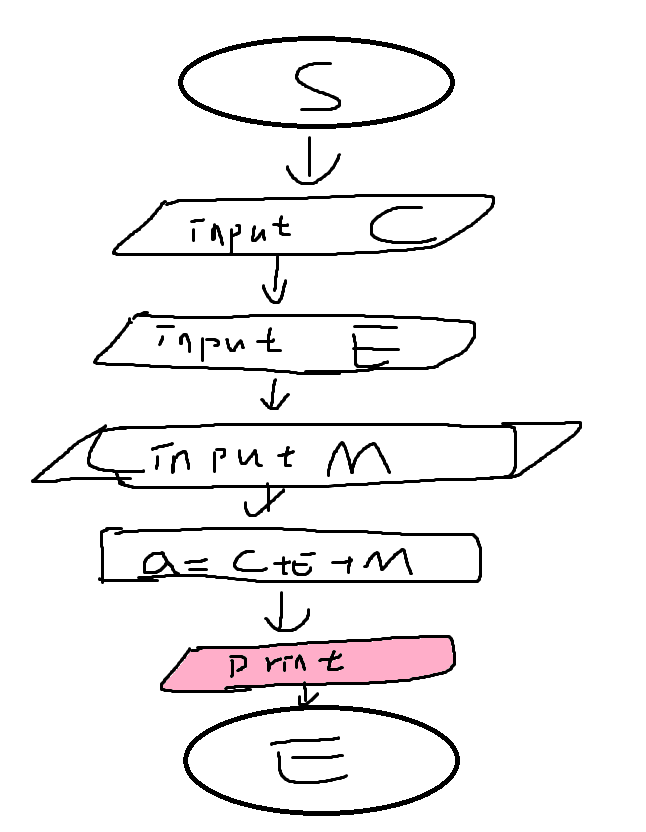 S
input C
input E
input M
a = C+E+M
print
E